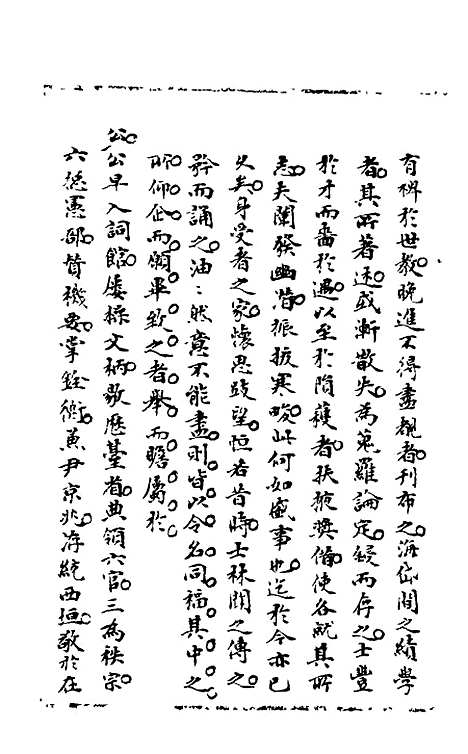 有裨於世教晚進不得盡覩者刊布之海岱間之績學
者其所著述或漸散失為蒐羅論定録而存之士豐
於才而嗇於遇以至於隕穫者扶掖奬脩使各就其所
志夫闡發幽潛振拔寒畯此何如盛事也迄於今亦已
久矣身受者之家懷思跂望恒若昔時士林聞之傳之
矜而誦之油〻然意不能盡則皆以今名同福其中之
所仰企而願畢致之者舉而瞻屬於
公公早入詞館屡操文柄敭歷臺省典領六官三為秩宗
六德憲部管機要掌銓衡兼尹京兆存統西垣敬於在